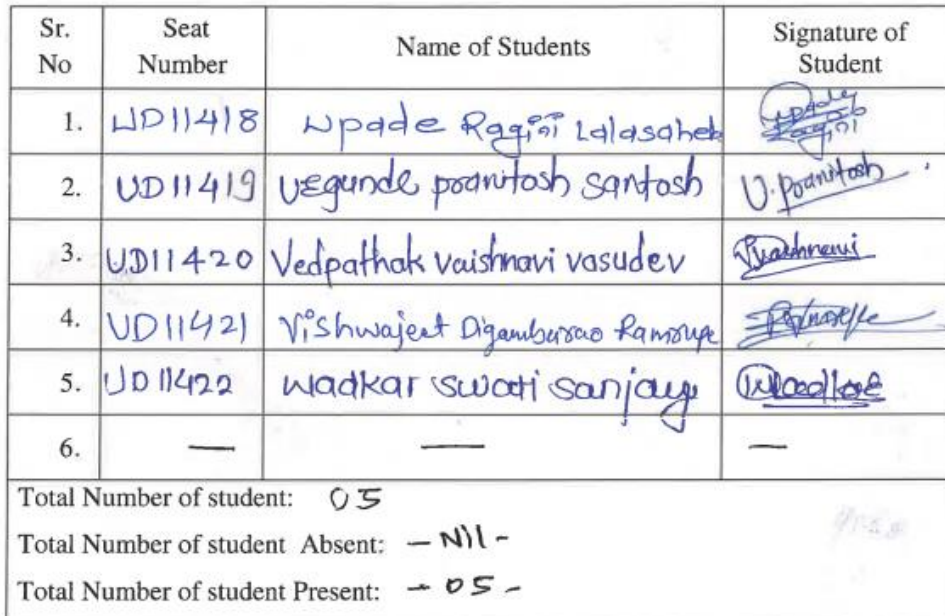 Sr. No Seat Number Name of Students Signature of Student
1. UD11418 Upade Ragini Lalasaheb Upade Ragini
2. UD11419 UEgunde pranitosh santosh U. Pranitosh
3. UD11420 Vedpathak vaishnavi vasudev Vaishnavi
4. UD11421 Vishwajeet Digambarrao Ramrupe
5. UD11422 wadkar swati sanjay Wadkar
6. — — —
Total Number of student: 05
Total Number of student Absent: - Nil -
Total Number of student Present: - 05 -